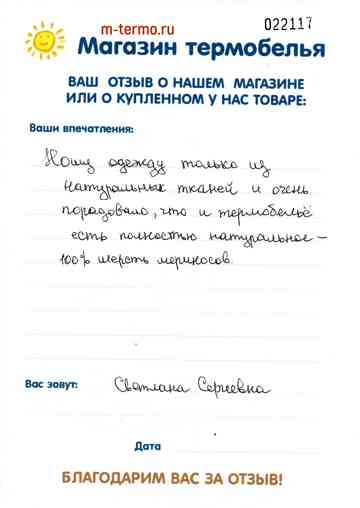 m-termo.ru
022117
Магазин термобелья
ВАШ ОТЗЫВ О НАШЕМ МАГАЗИНЕ
ИЛИ О КУПЛЕННОМ У НАС ТОВАРЕ:
Ваши впечатления:
Ношу одежду только из
натуральных тканей и очень
порадовало, что и термобельё
есть полностью натуральное –
100% шерсть мериносов.
Вас зовут: Светлана Сергеевна
Дата
БЛАГОДАРИМ ВАС ЗА ОТЗЫВ!